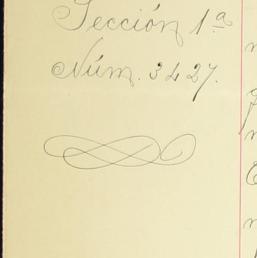 Sección 1.ª
Núm. 3427.